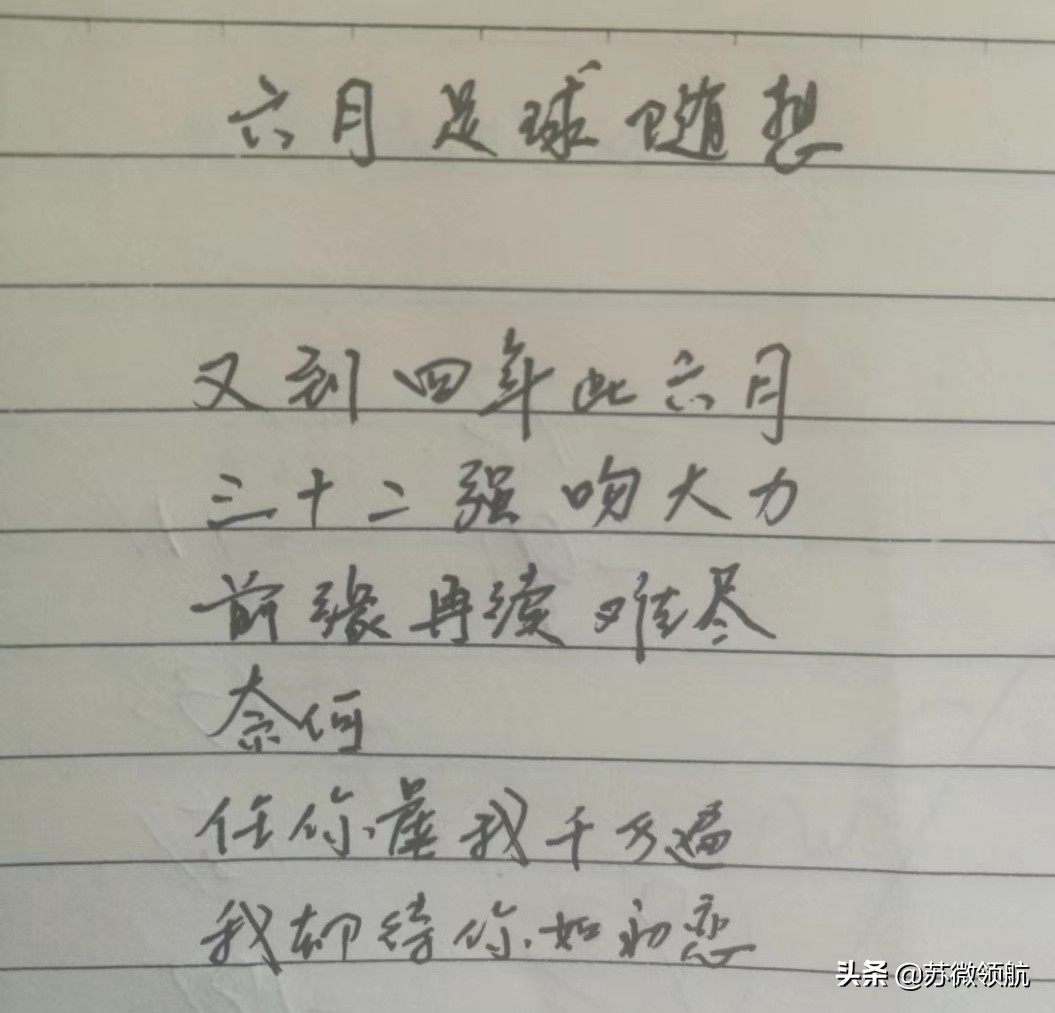 六月足球随想
又到四年此六月
三十二强吻大力
前缘再续难尽
奈何
任你虐我千万遍
我却待你如初恋
头条 @苏微领航